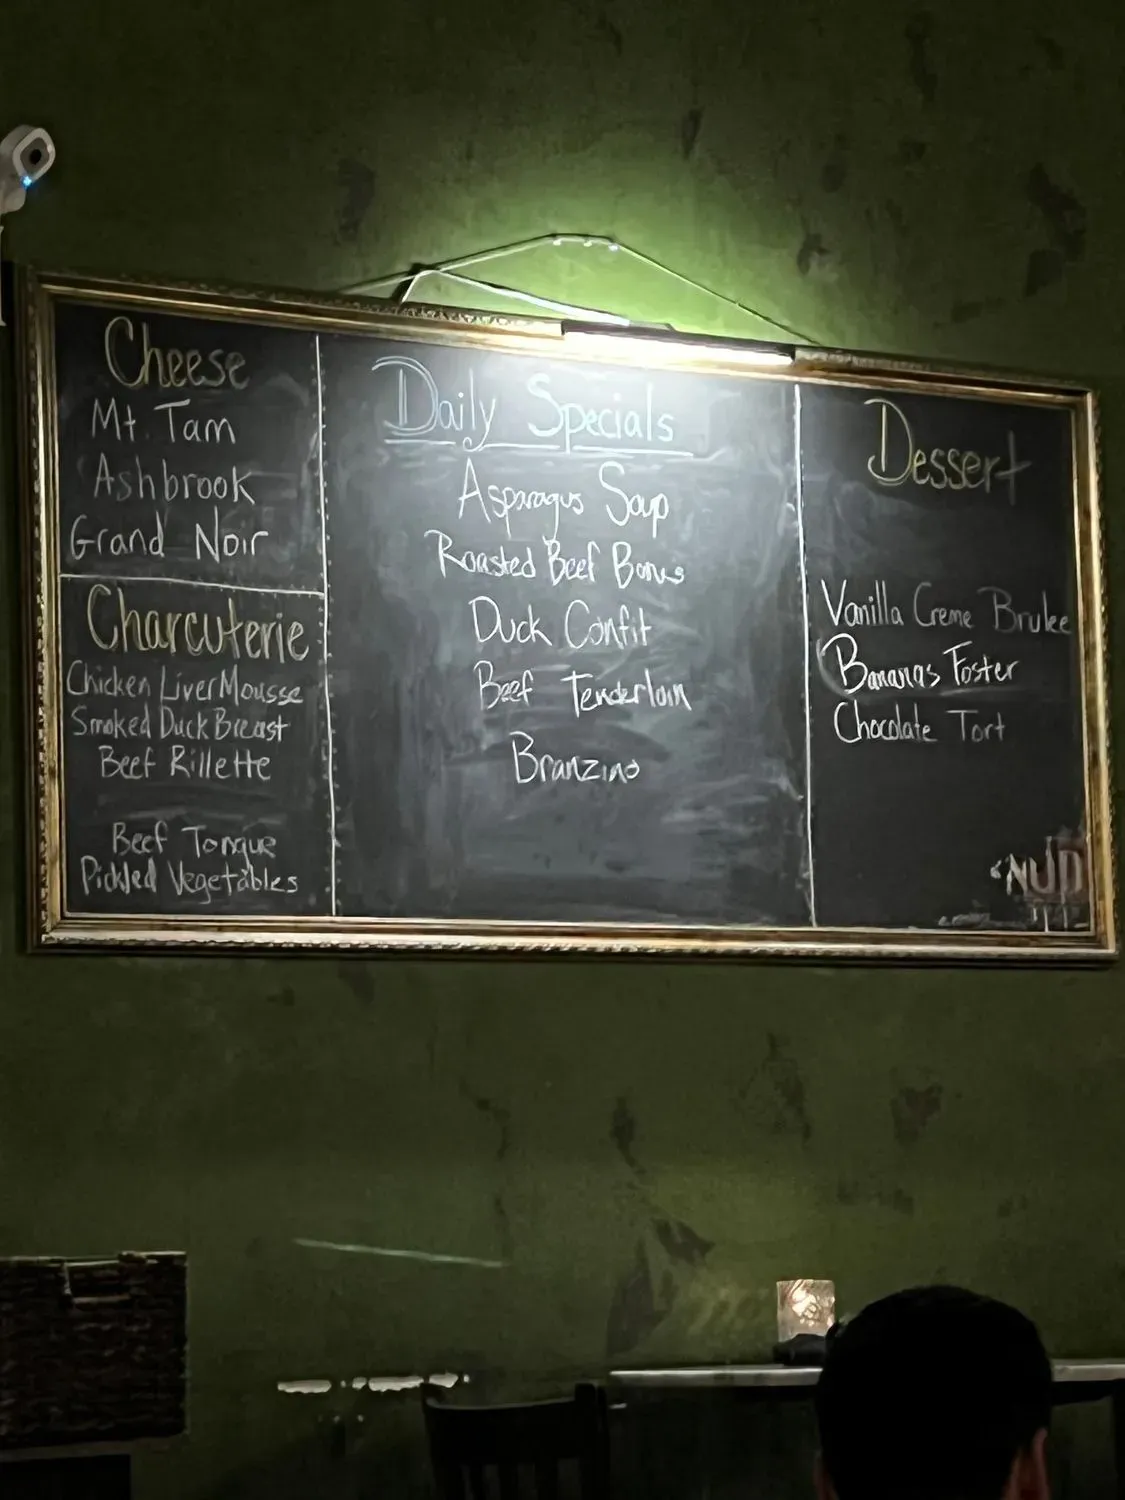 Cheese
Mt. Tam
Ashbrook
Grand Noir
Charcuterie
Chicken Liver Mousse
Smoked Duck Breast
Beef Rillette
Beef Tongue
Pickled Vegetables
Daily Specials
Asparagus Soup
Roasted Beef Bones
Duck Confit
Beef Tenderloin
Branzino
Dessert
Vanilla Creme Brulee
Bananas Foster
Chocolate Tort